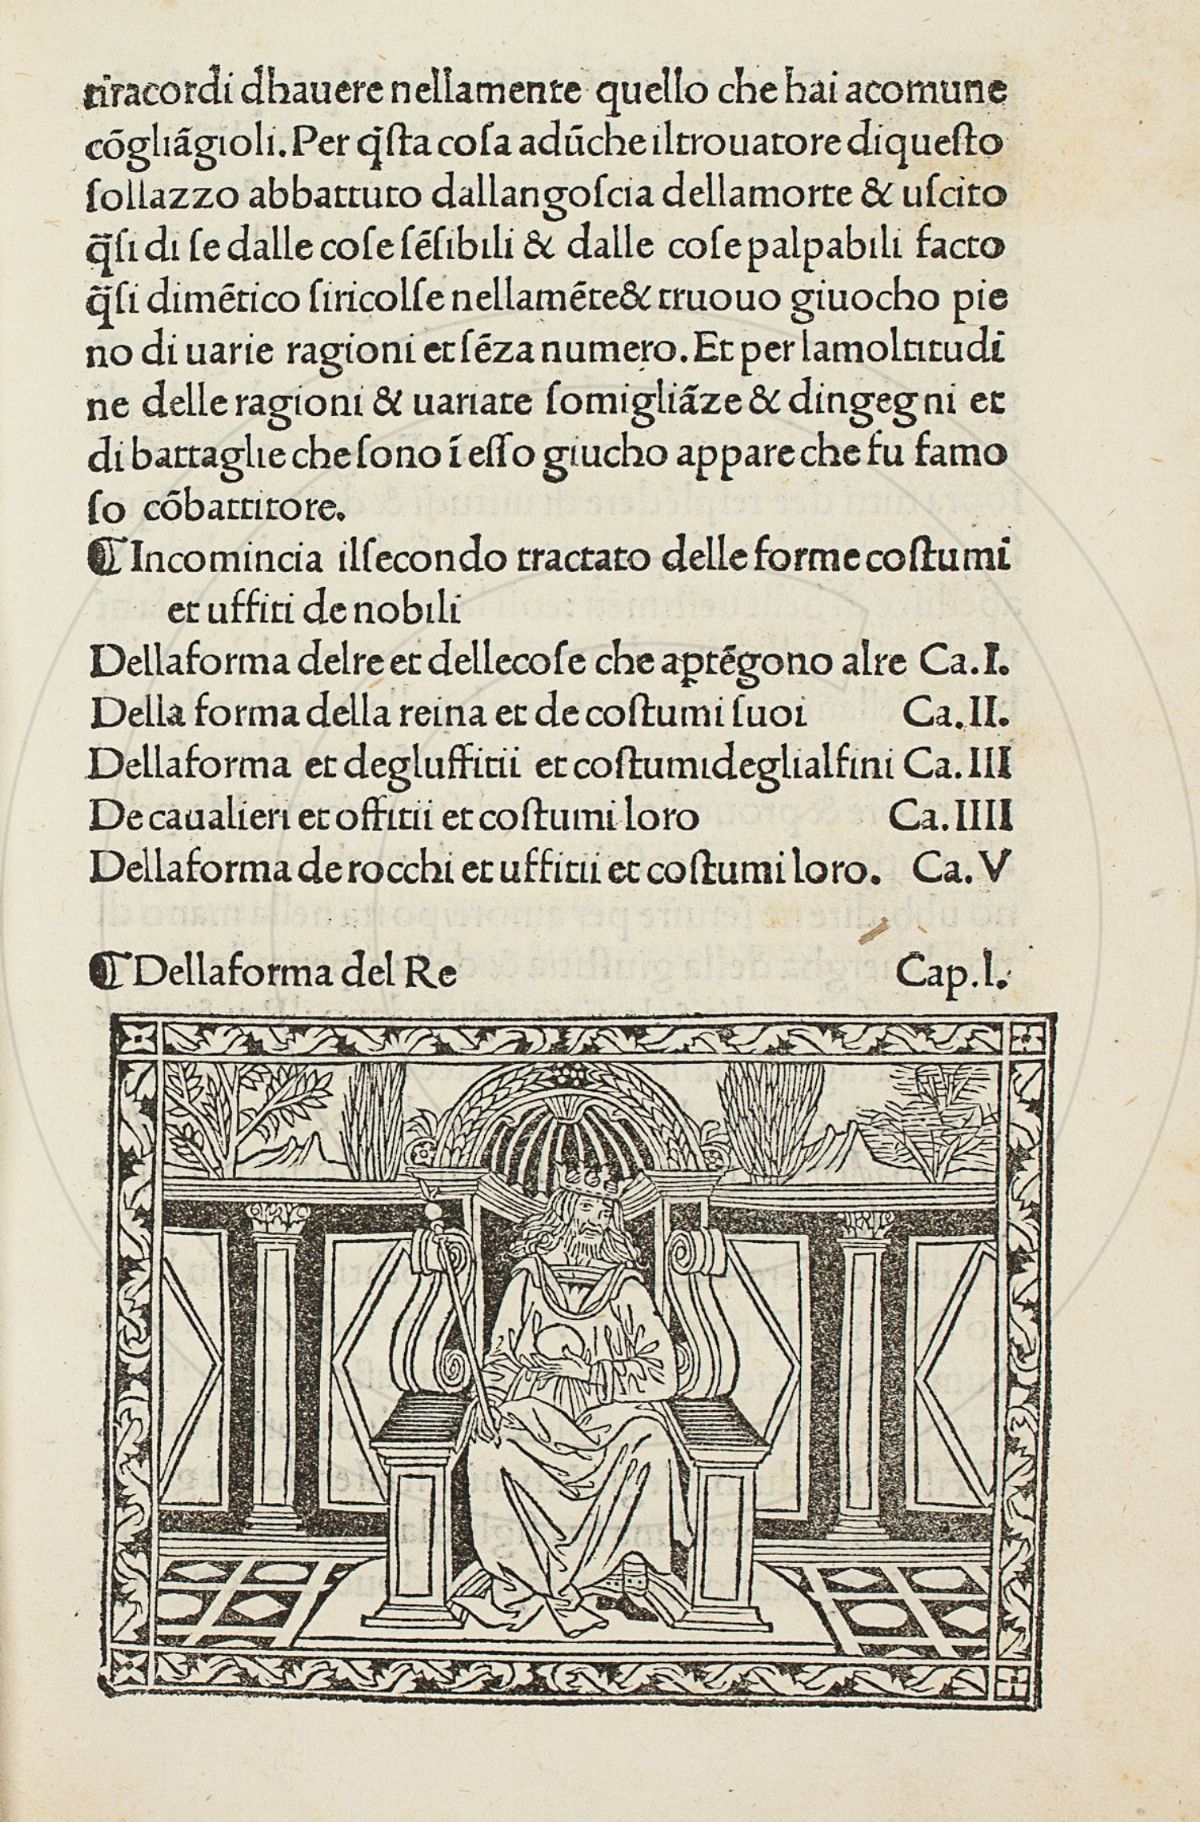 tiracordi dhauere nellamente quello che hai acomune
cõgliãgioli. Per q̃sta cosa adũche iltrouatore diquesto
sollazzo abbattuto dallangoscia dellamorte & uscito
q̃si di se dalle cose sẽsibili & dalle cose palpabili facto
q̃si dimẽtico siricolse nellamẽte & truouo giuocho pie
no di uarie ragioni et sẽza numero. Et per lamoltitudi
ne delle ragioni & uariate somigliãze & dingegni et
di battaglie che sono ĩ esso giucho appare che fu famo
so cõbattitore.
¶ Incomincia ilsecondo tractato delle forme costumi
et uffiti de nobili
Dellaforma delre et dellecose che aptẽgono alre Ca.I.
Della forma della reina et de costumi suoi Ca.II.
Dellaforma et degluffitii et costumideglialfini Ca.III
De caualieri et offitii et costumi loro Ca.IIII
Dellaforma de rocchi et uffitii et costumi loro. Ca. V
¶ Dellaforma del Re Cap.I.